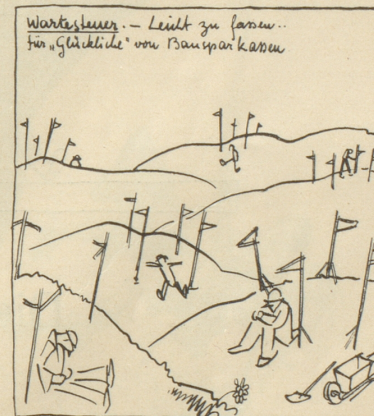 Wartesteuer. — Leicht zu fassen..
für „Glückliche" von Bausparkassen